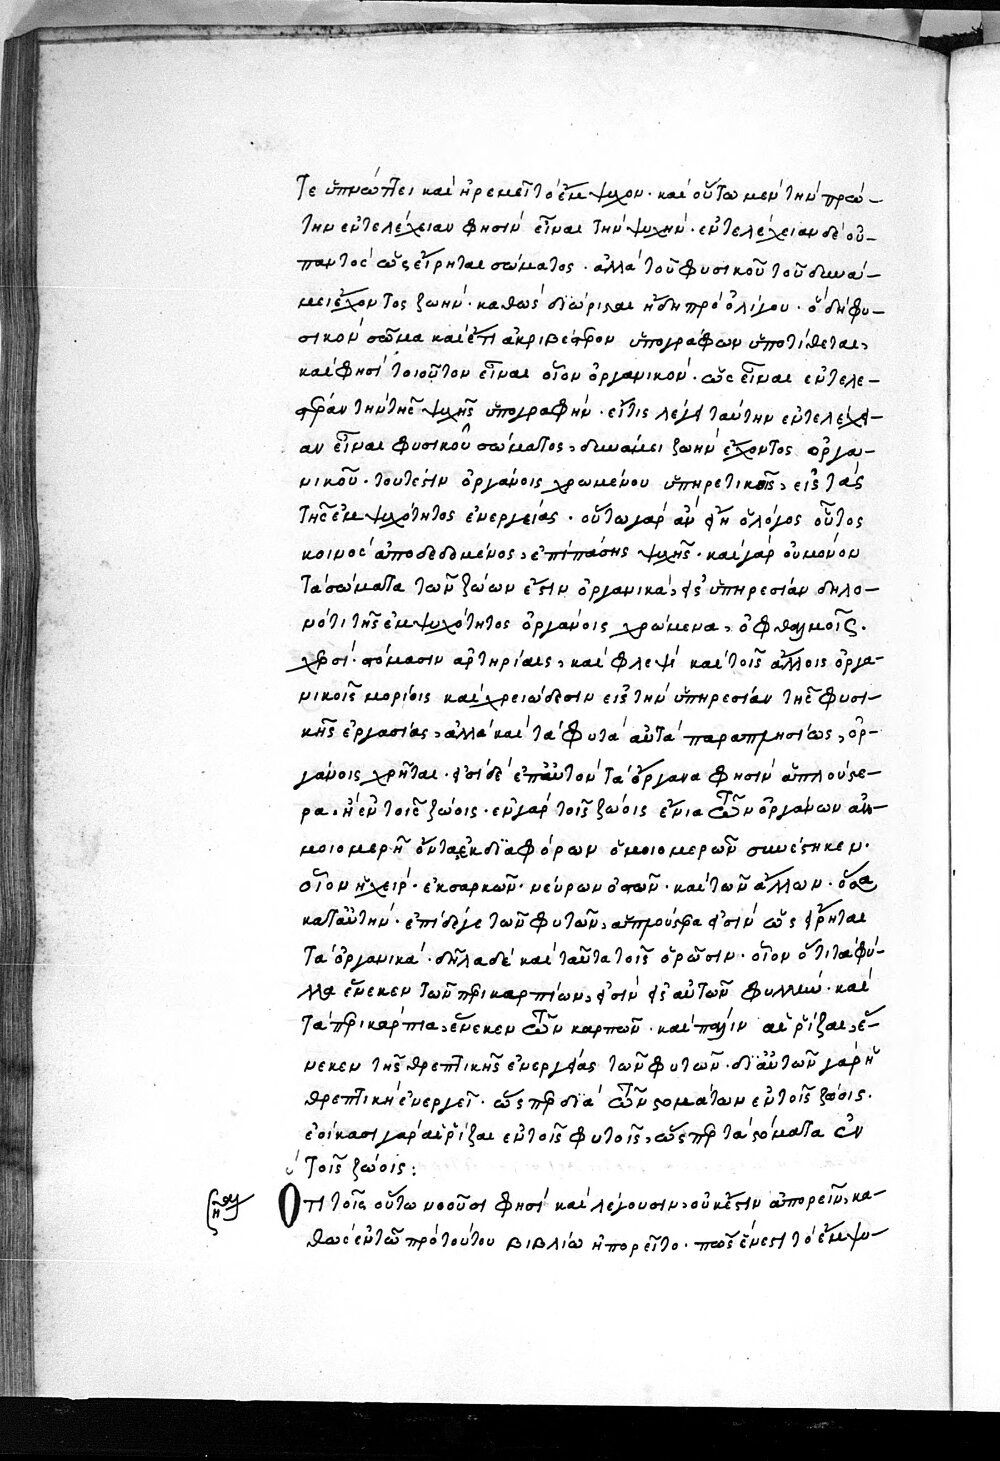 τε ὑπνώττει καὶ ἠρεμεῖ τὸ ἔμψυχον· καὶ οὕτω μὲν τὴν πρώ-
την ἐντελέχειαν φησὶν εἶναι τὴν ψυχήν· ἐντελέχειαν δὲ οὐ-
παντὸς ὡς εἴρηται σώματος· ἀλλὰ τοῦ φυσικοῦ τοῦ δυνά-
μει ἔχοντος ζωήν· καθὼς διώρισται ἤδη πρὸ ὀλίγου· ὃ δὴ φυ-
σικὸν σῶμα καὶ ἔτι ἀκριβέστερον ὑπογράφων ὑποτίθεται,
καὶ φησὶ τοιοῦτον εἶναι οἷον ὀργανικόν· ὡς εἶναι ἐντελε-
στέραν τὴν τῆς ψυχῆς ὑπογραφήν· εἴτις λέγει ταύτην ἐντελέχει-
αν εἶναι φυσικοῦ σώματος, δυνάμει ζωὴν ἔχοντος ὀργα-
νικοῦ· τουτέστιν ὀργάνοις χρωμένου ὑπηρετικοῖς, εἰς τὰς
τῆς ἐμψυχότητος ἐνεργείας· οὕτω γὰρ ἂν εἴη ὁ λόγος οὗτος
κοινὸς ἀποδεδομένος, ἐπὶ πάσης ψυχῆς· καὶ γὰρ οὐ μόνον
τὰ σώματα τῶν ζώων ἐστὶν ὀργανικά, εἰς ὑπηρεσίαν δηλο-
νότι τῆς ἐμψυχότητος ὀργάνοις χρώμενα, ὀφθαλμοῖς·
χερσί· στόμασιν ἀρτηρίαις, καὶ φλεψὶ καὶ τοῖς ἄλλοις ὀργα-
νικοῖς μορίοις καὶ χρειώδεσιν εἰς τὴν ὑπηρεσίαν τῆς φυσι-
κῆς ἐργασίας, ἀλλὰ καὶ τὰ φυτὰ αὐτὰ παραπλησίως, ὀρ-
γάνοις χρῆται· εἰσὶ δὲ ἐπαὐτῶν τὰ ὄργανα φησὶν ἁπλούστε-
ρα, ἢ ἐν τοῖς ζώοις· ἐν γὰρ τοῖς ζώοις ἔνια τῶν ὀργάνων ἀν-
μοιομερῆ ὄντα, ἐκ διαφόρων ὁμοιομερῶν συνέστηκεν·
οἷον ἡ χείρ· ἐκ σαρκῶν· νεύρων ὀστῶν· καὶ τῶν ἄλλων· ὅσα
καταὐτήν· ἐπὶ δέγε τῶν φυτῶν, ἁπλούστερα εἰσὶν ὡς εἴρηται
τὰ ὀργανικά· δῆλα δὲ καὶ ταῦτα τοῖς ὁρῶσιν· οἷον ὅτι τὰ φύ-
λλα ἕνεκεν τῶν περικαρπίων, εἰσὶν εἰς αὐτῶν φυλακήν· καὶ
τὰ περικάρπια, ἕνεκεν τῶν καρπῶν· καὶ πάλιν αἱ ῥίζαι, ἕ-
νεκεν τῆς θρεπτικῆς ἐνεργείας τῶν φυτῶν· διαὐτῶν γὰρ ἡ
θρεπτικὴ ἐνεργεῖ· ὥσπερ διὰ τῶν στομάτων ἐν τοῖς ζώοις·
ἐοίκασι γὰρ αἱ ῥίζαι ἐν τοῖς φυτοῖς, ὥσπερ τὰ στόματα ἐν
τοῖς ζώοις:
Ὅτι τοῖς οὕτω νοοῦσι φησὶ καὶ λέγουσιν, οὐκ ἔστιν ἀπορεῖν, κα-
θὼς ἐν τῷ πρὸ τούτου βιβλίω ἠπορεῖτο· πῶς ἕνεστι τὸ ἔμψυ-